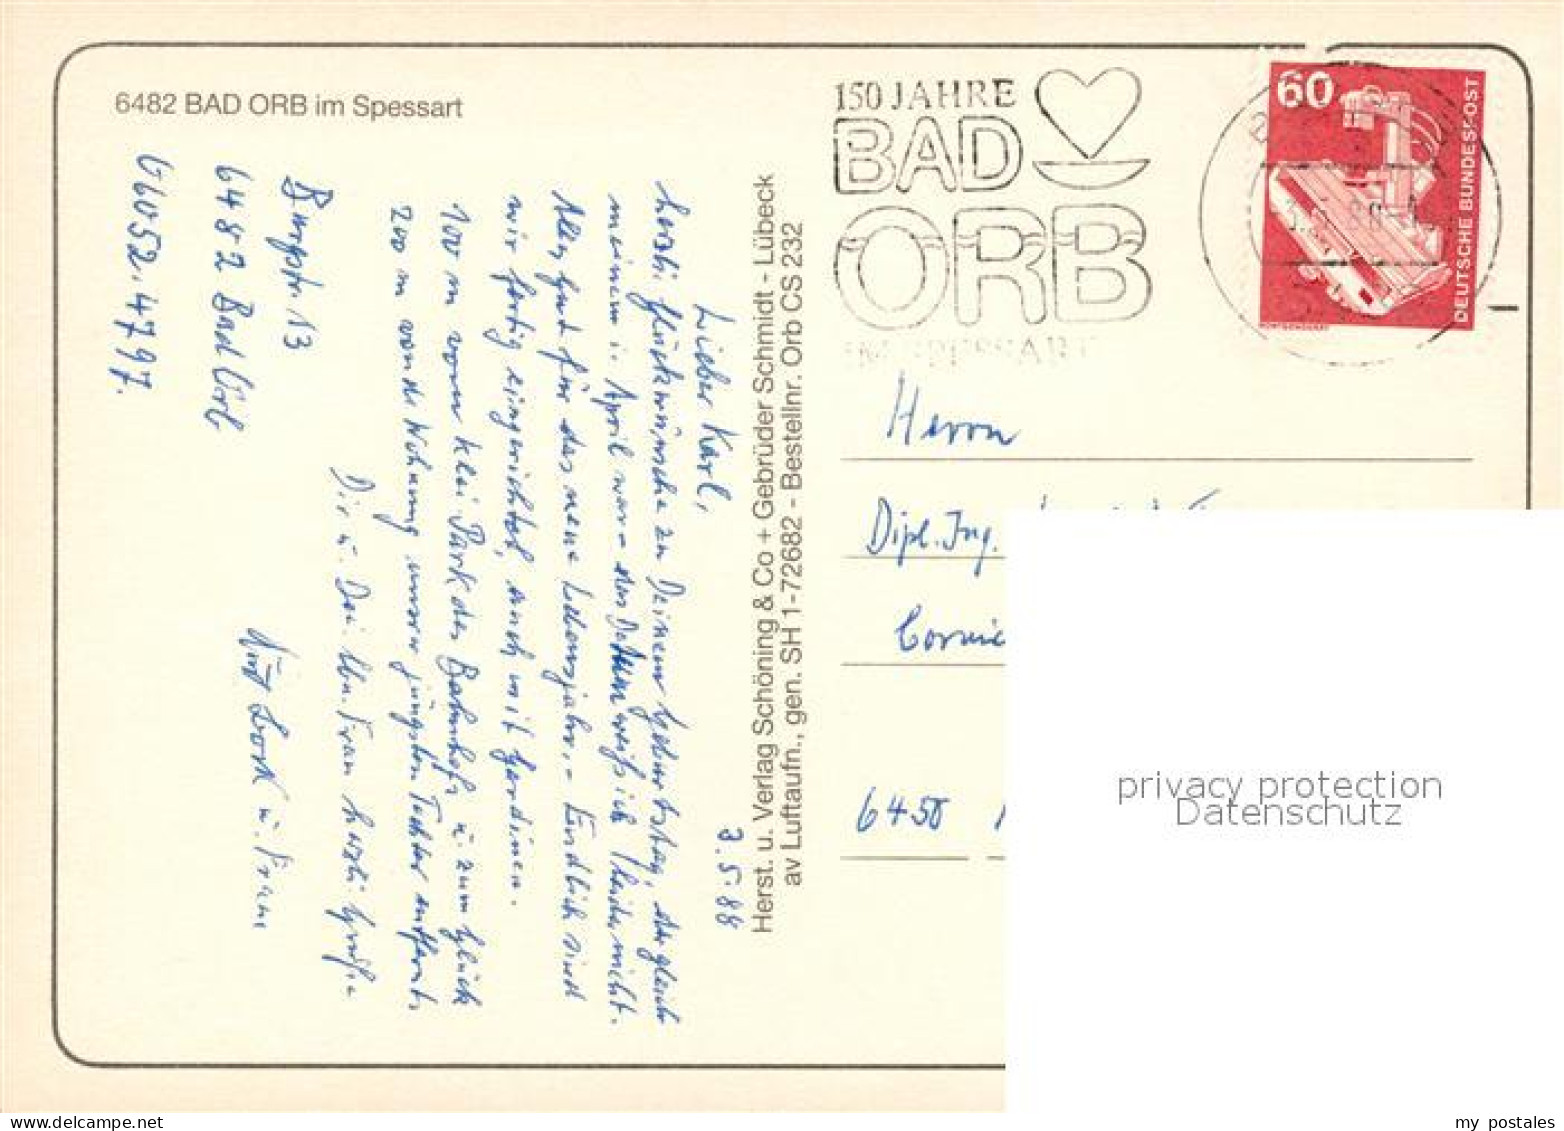 6482 BAD ORB im Spessart
150 JAHRE
BAD
ORB
IM SPESSART
60
DEUTSCHE BUNDESPOST
3.5.88
Lieber Karl,
herzli. Glückwünsche zu Deinem Geburtstag, der gleich
meinem i. April war – das Datum weiß ich leider nicht.
Alles Gute für das neue Lebensjahr. – Endlich sind
wir fertig eingerichtet, auch mit Gardinen.
100 m vom klei. Park des Bahnhofs u. zum Glück
200 m von de Wohnung unserer jüngsten Tochter entfernt.
Dir u. Dei. lbn. Frau herzli. Grüße
u. Frau
Burgstr. 13
6482 Bad Orb
06052.4797.
Herst. u. Verlag Schöning & Co + Gebrüder Schmidt - Lübeck
av Luftaufn., gen. SH 1-72682 - Bestellnr. Orb CS 232
Herrn
Dipl.-Ing.
6450
privacy protection
Datenschutz
my_postales